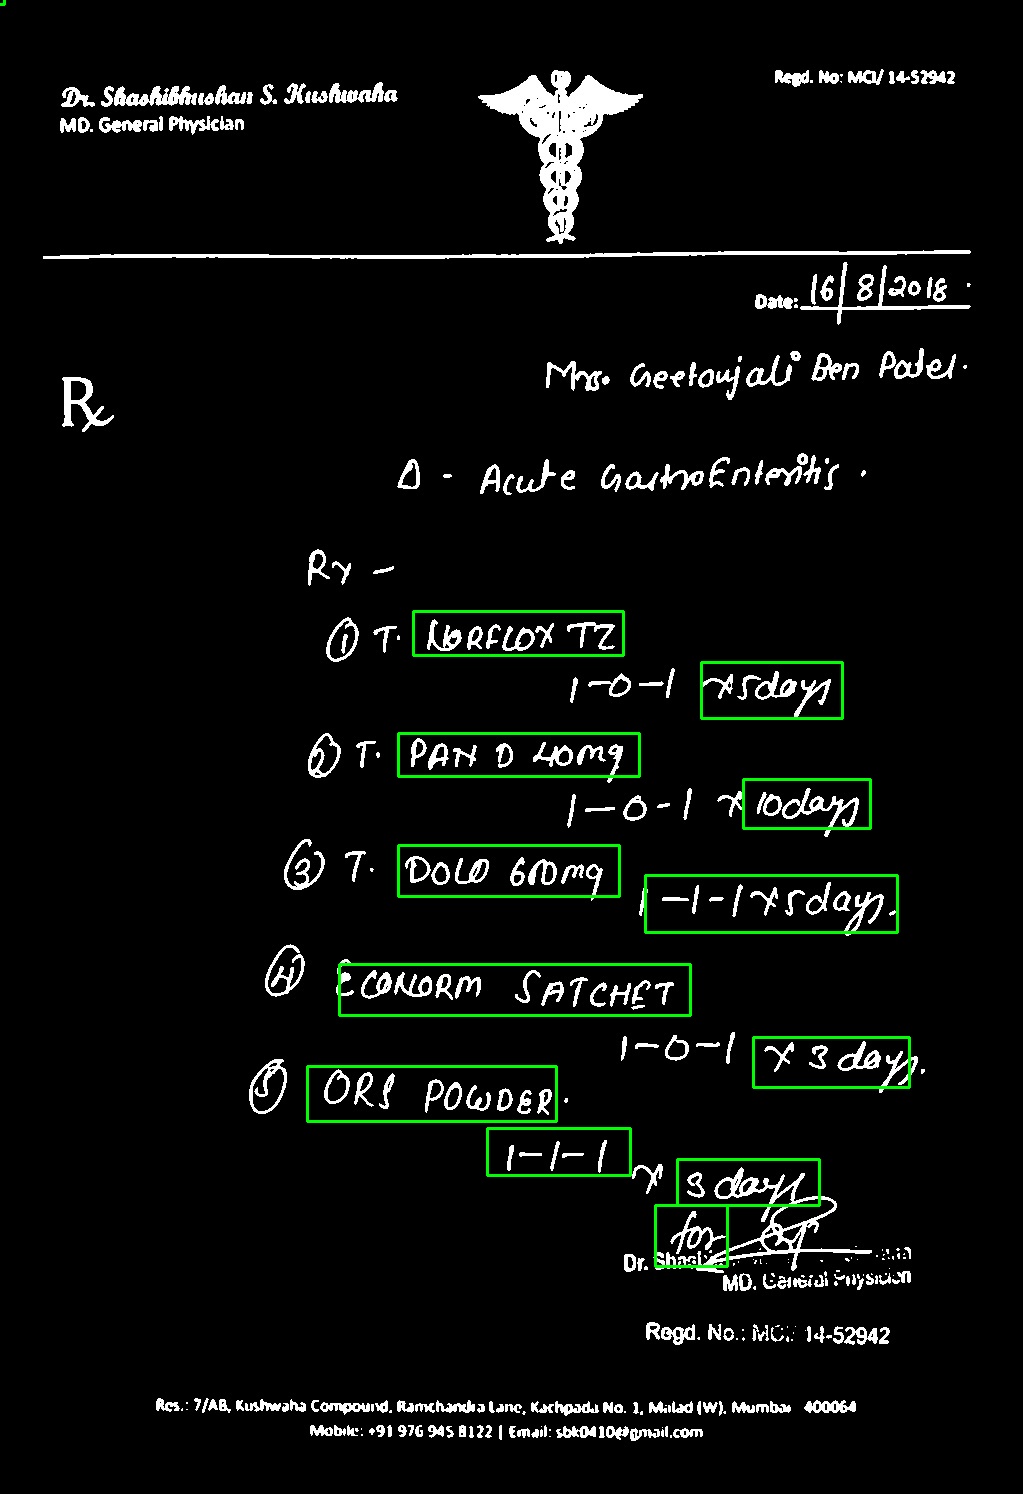 Dr. Shashibhushan S. Kushwaha
MD. General Physician
Regd. No: MCI/ 14-52942
Date: 16/8/2018
Mrs. Geetanjali Ben Patel.
Rx
Δ - Acute GastroEnteritis.
Rx -
① T. NORFLOX TZ
1-0-1 x 5 days
② T. PAN D 40mg
1-0-1 x 10 days
③ T. DOLO 650mg
1-1-1 x 5 days.
④ ECONORM SATCHET
1-0-1 x 3 days.
⑤ ORS POWDER.
1-1-1 x 3 days
for
Dr. Shash
MD. General Physician
Regd. No.: MCI/ 14-52942
Res.: 7/AB, Kushwaha Compound, Ramchandra Lane, Kachpada No. 1, Malad (W), Mumbai 400064
Mobile: +91 976 945 8122 | Email: sbk0410@gmail.com